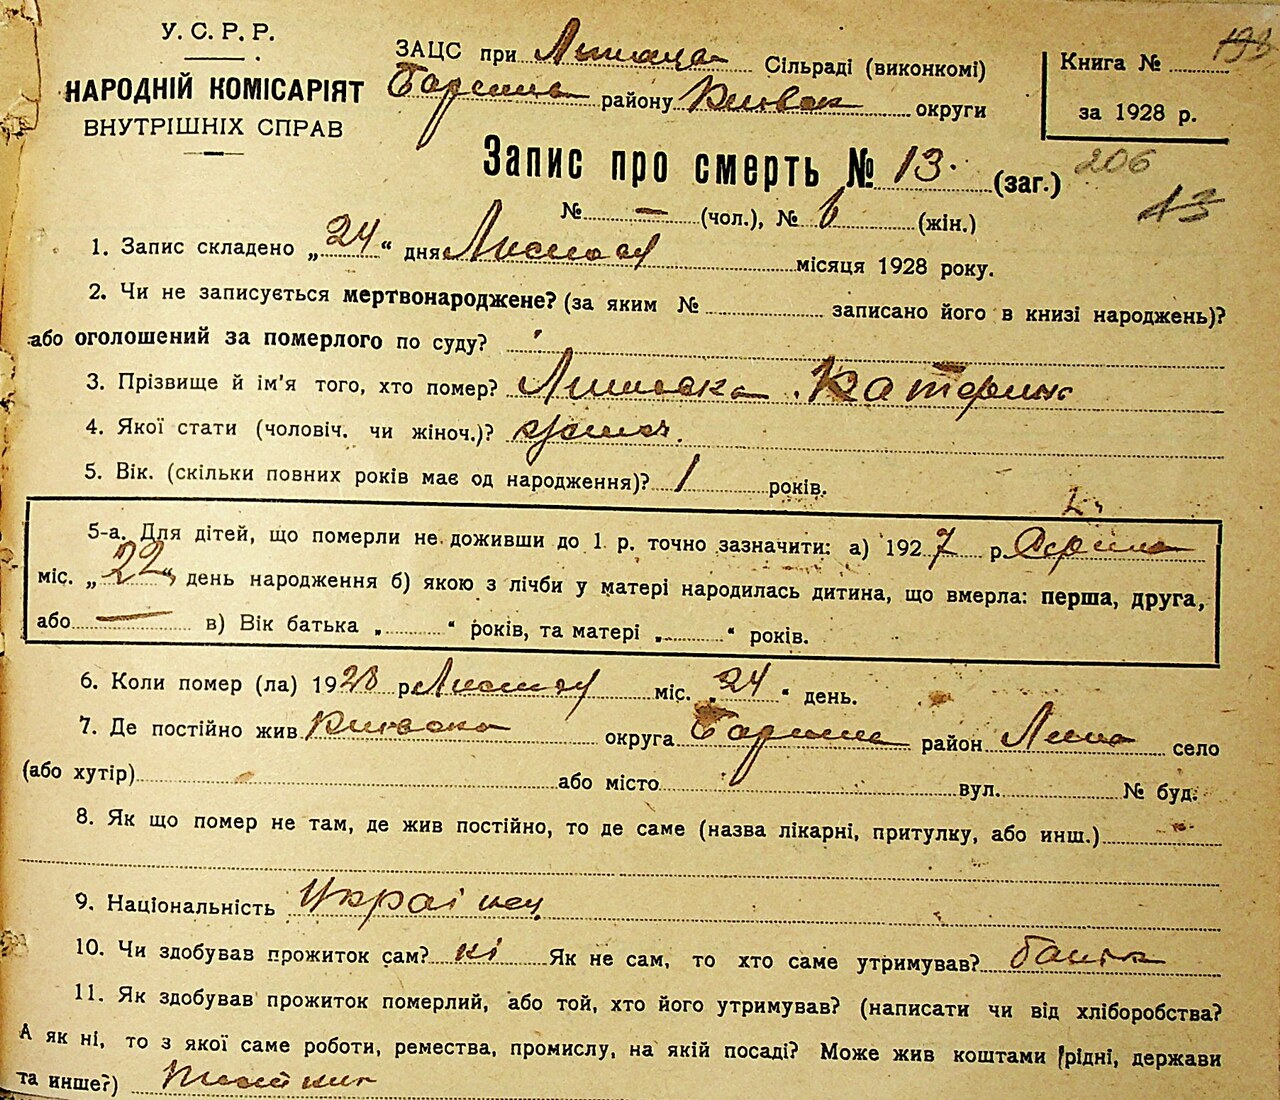 У. С. Р. Р.
НАРОДНІЙ КОМІСАРІЯТ
ВНУТРІШНІХ СПРАВ
ЗАЦС при Сільраді (виконкомі)
району округи
Книга №
за 1928 р.
206
13
Запис про смерть № 13. (заг.)
№ — (чол.), № 6 (жін.)
1. Запис складено „24“ дня місяця 1928 року.
2. Чи не записується мертвонароджене? (за яким № записано його в книзі народжень)?
або оголошений за померлого по суду?
3. Прізвище й ім'я того, хто помер? Катерина
4. Якої стати (чоловіч. чи жіноч.)?
5. Вік. (скільки повних років має од народження)? 1 років.
5-а. Для дітей, що померли не доживши до 1 р. точно зазначити: а) 1927 р.
міс. „22“ день народження б) якою з лічби у матері народилась дитина, що вмерла: перша, друга,
або — в) Вік батька „ “ років, та матері „ “ років.
6. Коли помер (ла) 1928 р. міс. „24“ день.
7. Де постійно жив округа район село
(або хутір) або місто вул. № буд.
8. Як що помер не там, де жив постійно, то де саме (назва лікарні, притулку, або инш.)
9. Національність Украінец
10. Чи здобував прожиток сам? ні Як не сам, то хто саме утримував?
11. Як здобував прожиток померлий, або той, хто його утримував? (написати чи від хліборобства?
А як ні, то з якої саме роботи, ремества, промислу, на якій посаді? Може жив коштами (рідні, держави
та инше?)